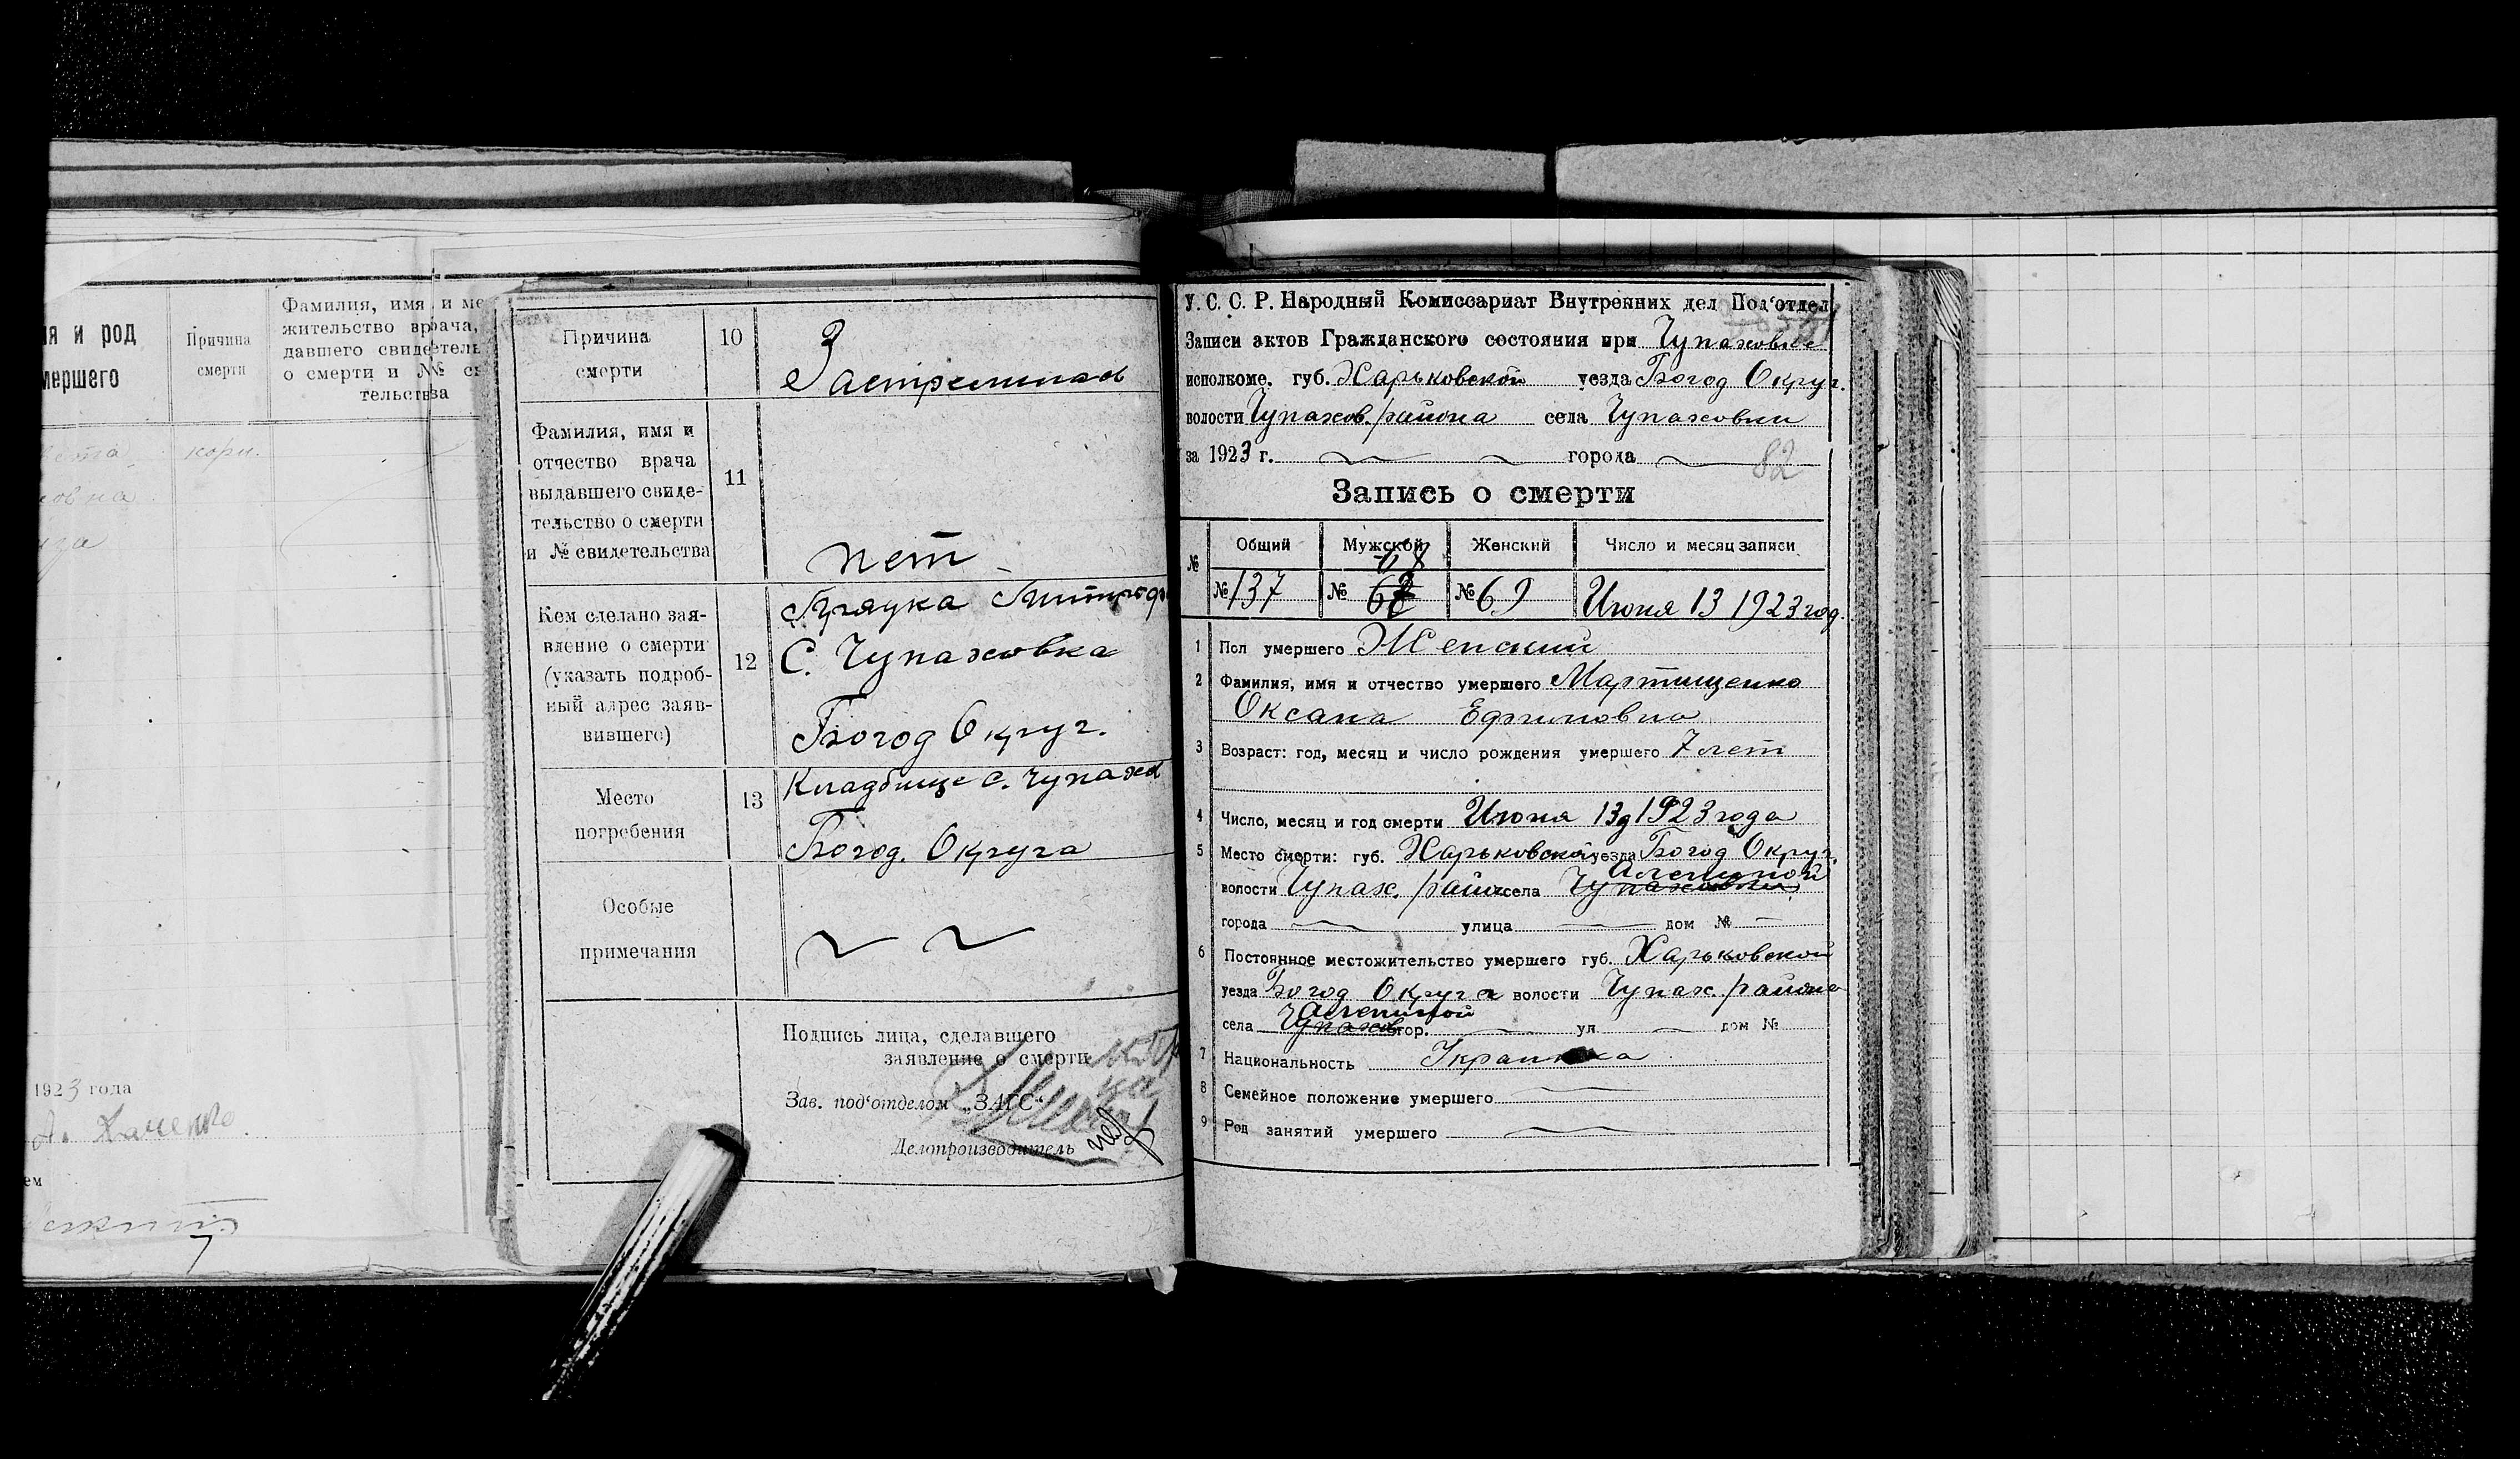 ия и род
мершего
Причина
смерти
Фамилия, имя и ме
жительство врача,
давшего свидетель
о смерти и №№ св
тельства
кори.
1923 года
7
Причина
смерти
10
Застрелилась
Фамилия, имя и
отчество врача
выдавшего свиде-
тельство о смерти
и № свидетельства
11
нет
Кем сделано зая-
вление о смерти
(указать подроб-
ный адрес заяв-
вившего)
12
С. Чупаховка
Богод Округ.
Место
погребения
13
Кладбище с. Чупахов
Богод. Округа
Особые
примечания
Подпись лица, сделавшего
заявление о смерти
Зав. под'отделом „ЗАГС"
Делопроизводитель
У. С. С. Р. Народный Комиссариат Внутренних дел Под'отдел
Записи актов Гражданского состояния при Чупаховке
исполкоме. губ. Харьковской уезда Богод Округ.
волости Чупахов. района села Чупаховки
за 1923 г. города
82
Запись о смерти
№ Общий Мужской Женский Число и месяц записи
№ 137 № № 69 Июня 13 1923 год.
1 Пол умершего Женский
2 Фамилия, имя и отчество умершего Мартищенко
Оксана Ефимовна
3 Возраст: год, месяц и число рождения умершего 7 лет
4 Число, месяц и год смерти Июня 13д 1923 года
5 Место смерти: губ. Харьковской уезда Богод Округ.
волости Чупах. района села Чупаховки
города улица дом №
6 Постоянное местожительство умершего губ. Харьковской
уезда Богод Округа волости Чупах. района
села Чупахов гор. ул. дом №
7 Национальность Украинка
8 Семейное положение умершего
9 Род занятий умершего